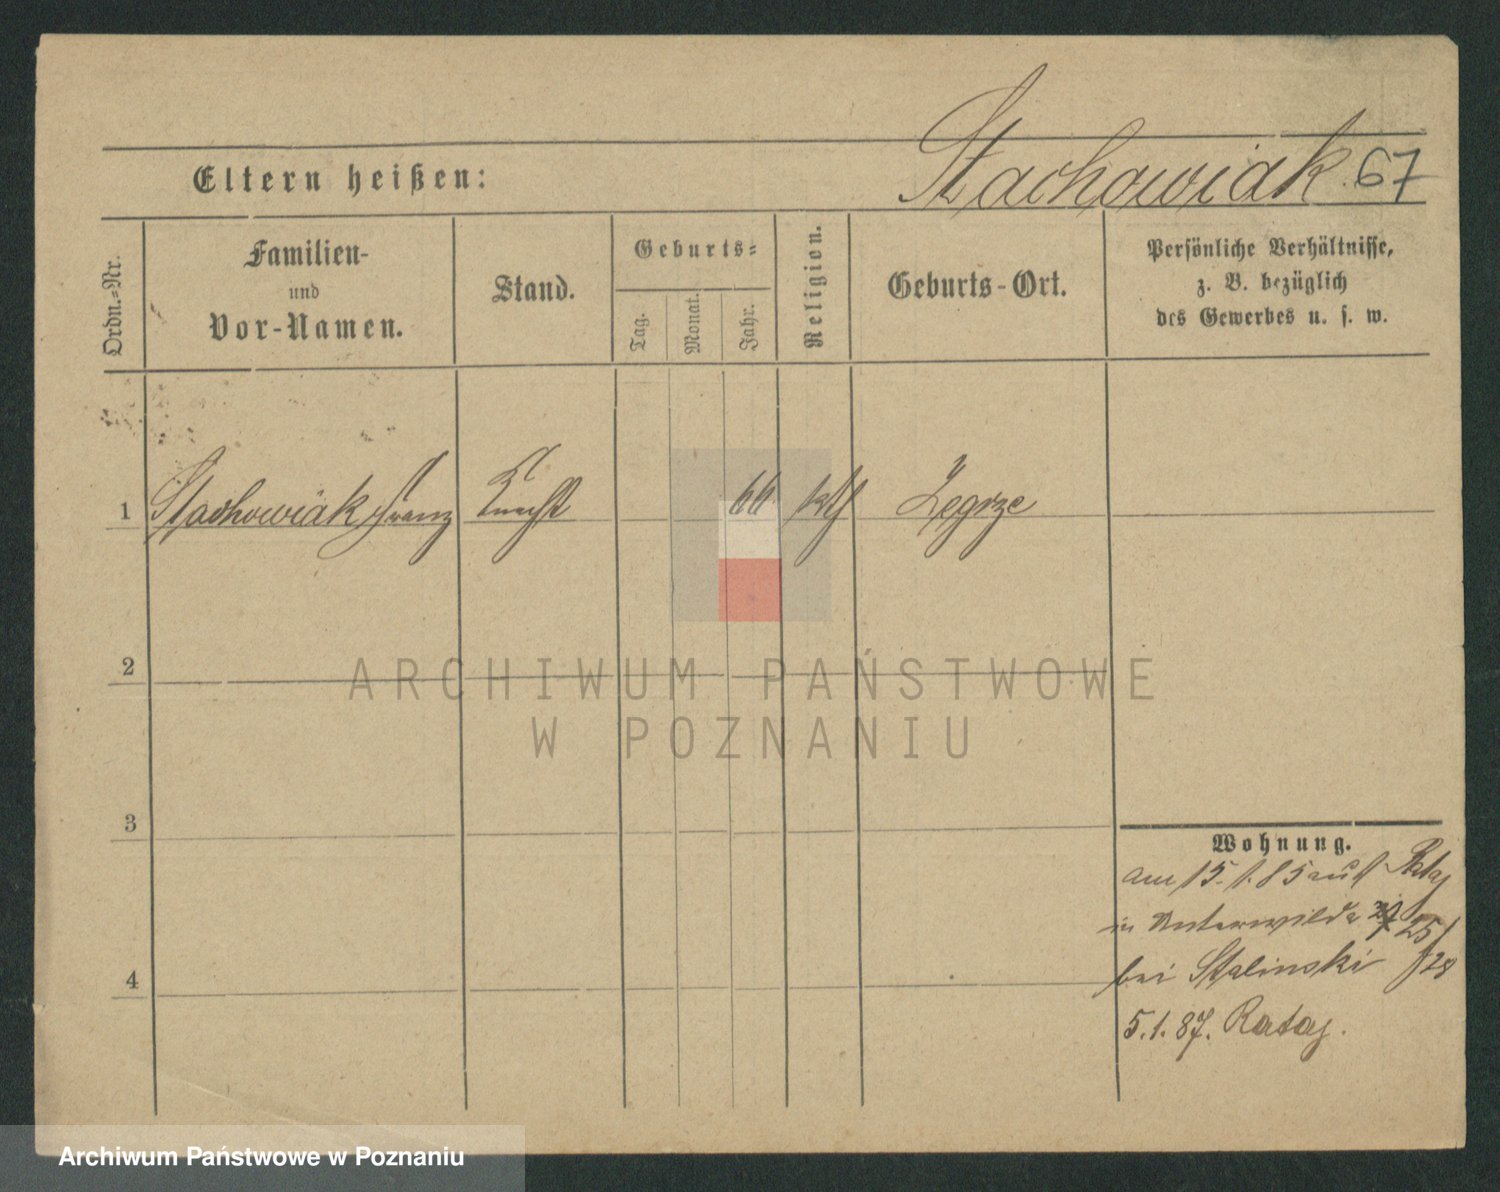 Stachowiak. 67
Eltern heißen:
Ordn.=Nr.
Familien-
und
Vor-Namen.
Stand.
Geburts=
Tag.
Monat.
Jahr.
Religion.
Geburts-Ort.
Persönliche Verhältnisse,
z. B. bezüglich
des Gewerbes u. s. w.
1 Stachowiak Franz Knecht 66 kth Zegrze
2
ARCHIWUM PAŃSTWOWE
W POZNANIU
3
Wohnung.
am 15. 1. 85 auf Rataj
in Unterwilda 25/
bei Stalinski /28
4
5. 1. 87. Rataj.
Archiwum Państwowe w Poznaniu